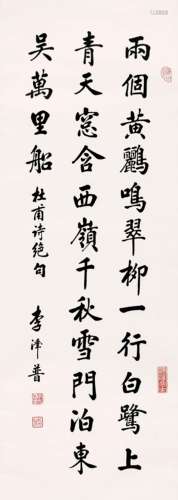 兩個黃鸝鳴翠柳一行白鷺上
青天窓含西嶺千秋雪門泊東
吳萬里船 杜甫诗绝句 李澤普